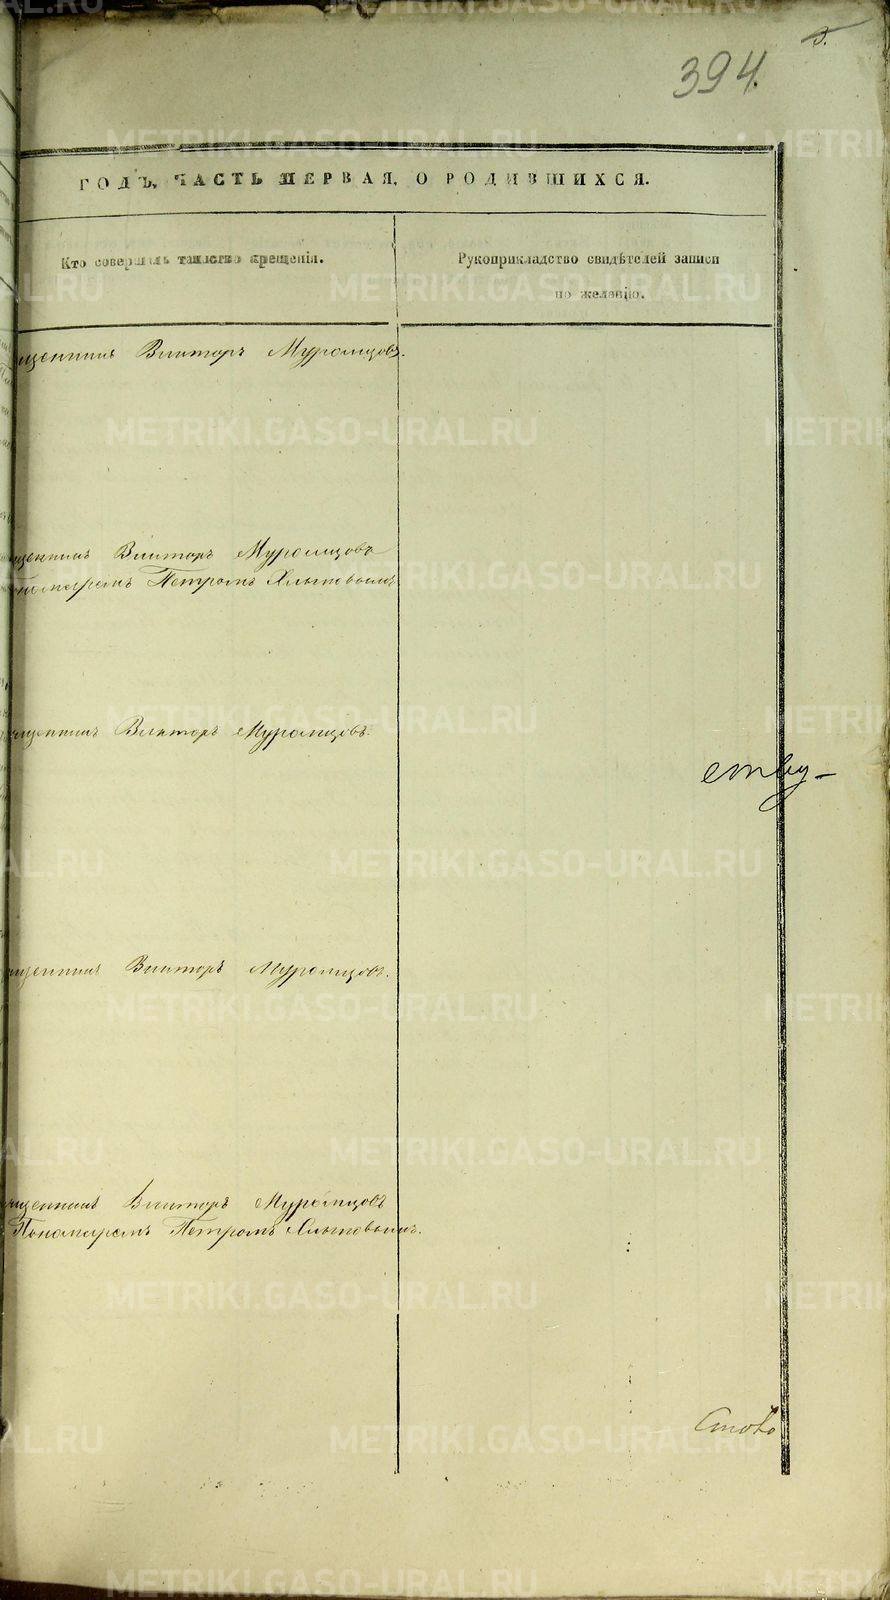 394.
ГОДЪ, ЧАСТЬ ПЕРВАЯ, О РОДИВШИХСЯ.
Кто совершалъ таинство крещенія.
Рукоприкладство свидѣтелей записи
по желанію.
щенникъ Викторъ Муромцовъ.
щенникъ Викторъ Муромцовъ
Пономаремъ Петромъ Хлыновымъ
щенникъ Викторъ Муромцовъ.
ству-
щенникъ Викторъ Муромцовъ.
щенникъ Викторъ Муромцовъ
Пономаремъ Петромъ Хлыновымъ.
METRIKI.GASO-URAL.RU